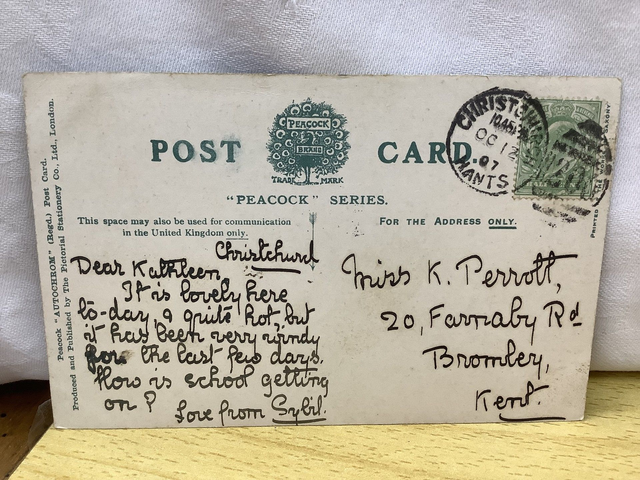 POST CARD
PEACOCK
BRAND
TRADE MARK
"PEACOCK" SERIES.
This space may also be used for communication
in the United Kingdom only.
FOR THE ADDRESS ONLY.
CHRISTCHURCH
OC 12
07
HANTS
Christchurch
Dear Kathleen
It is lovely here
to-day, & quite hot, but
it has been very windy
for the last few days.
How is school getting
on?
Love from Sybil.
Miss K. Perrott,
20, Farnaby Rd
Bromley,
Kent.
Peacock "AUTOCHROM" (Regd.) Post Card.
Produced and Published by The Pictorial Stationery Co., Ltd., London.